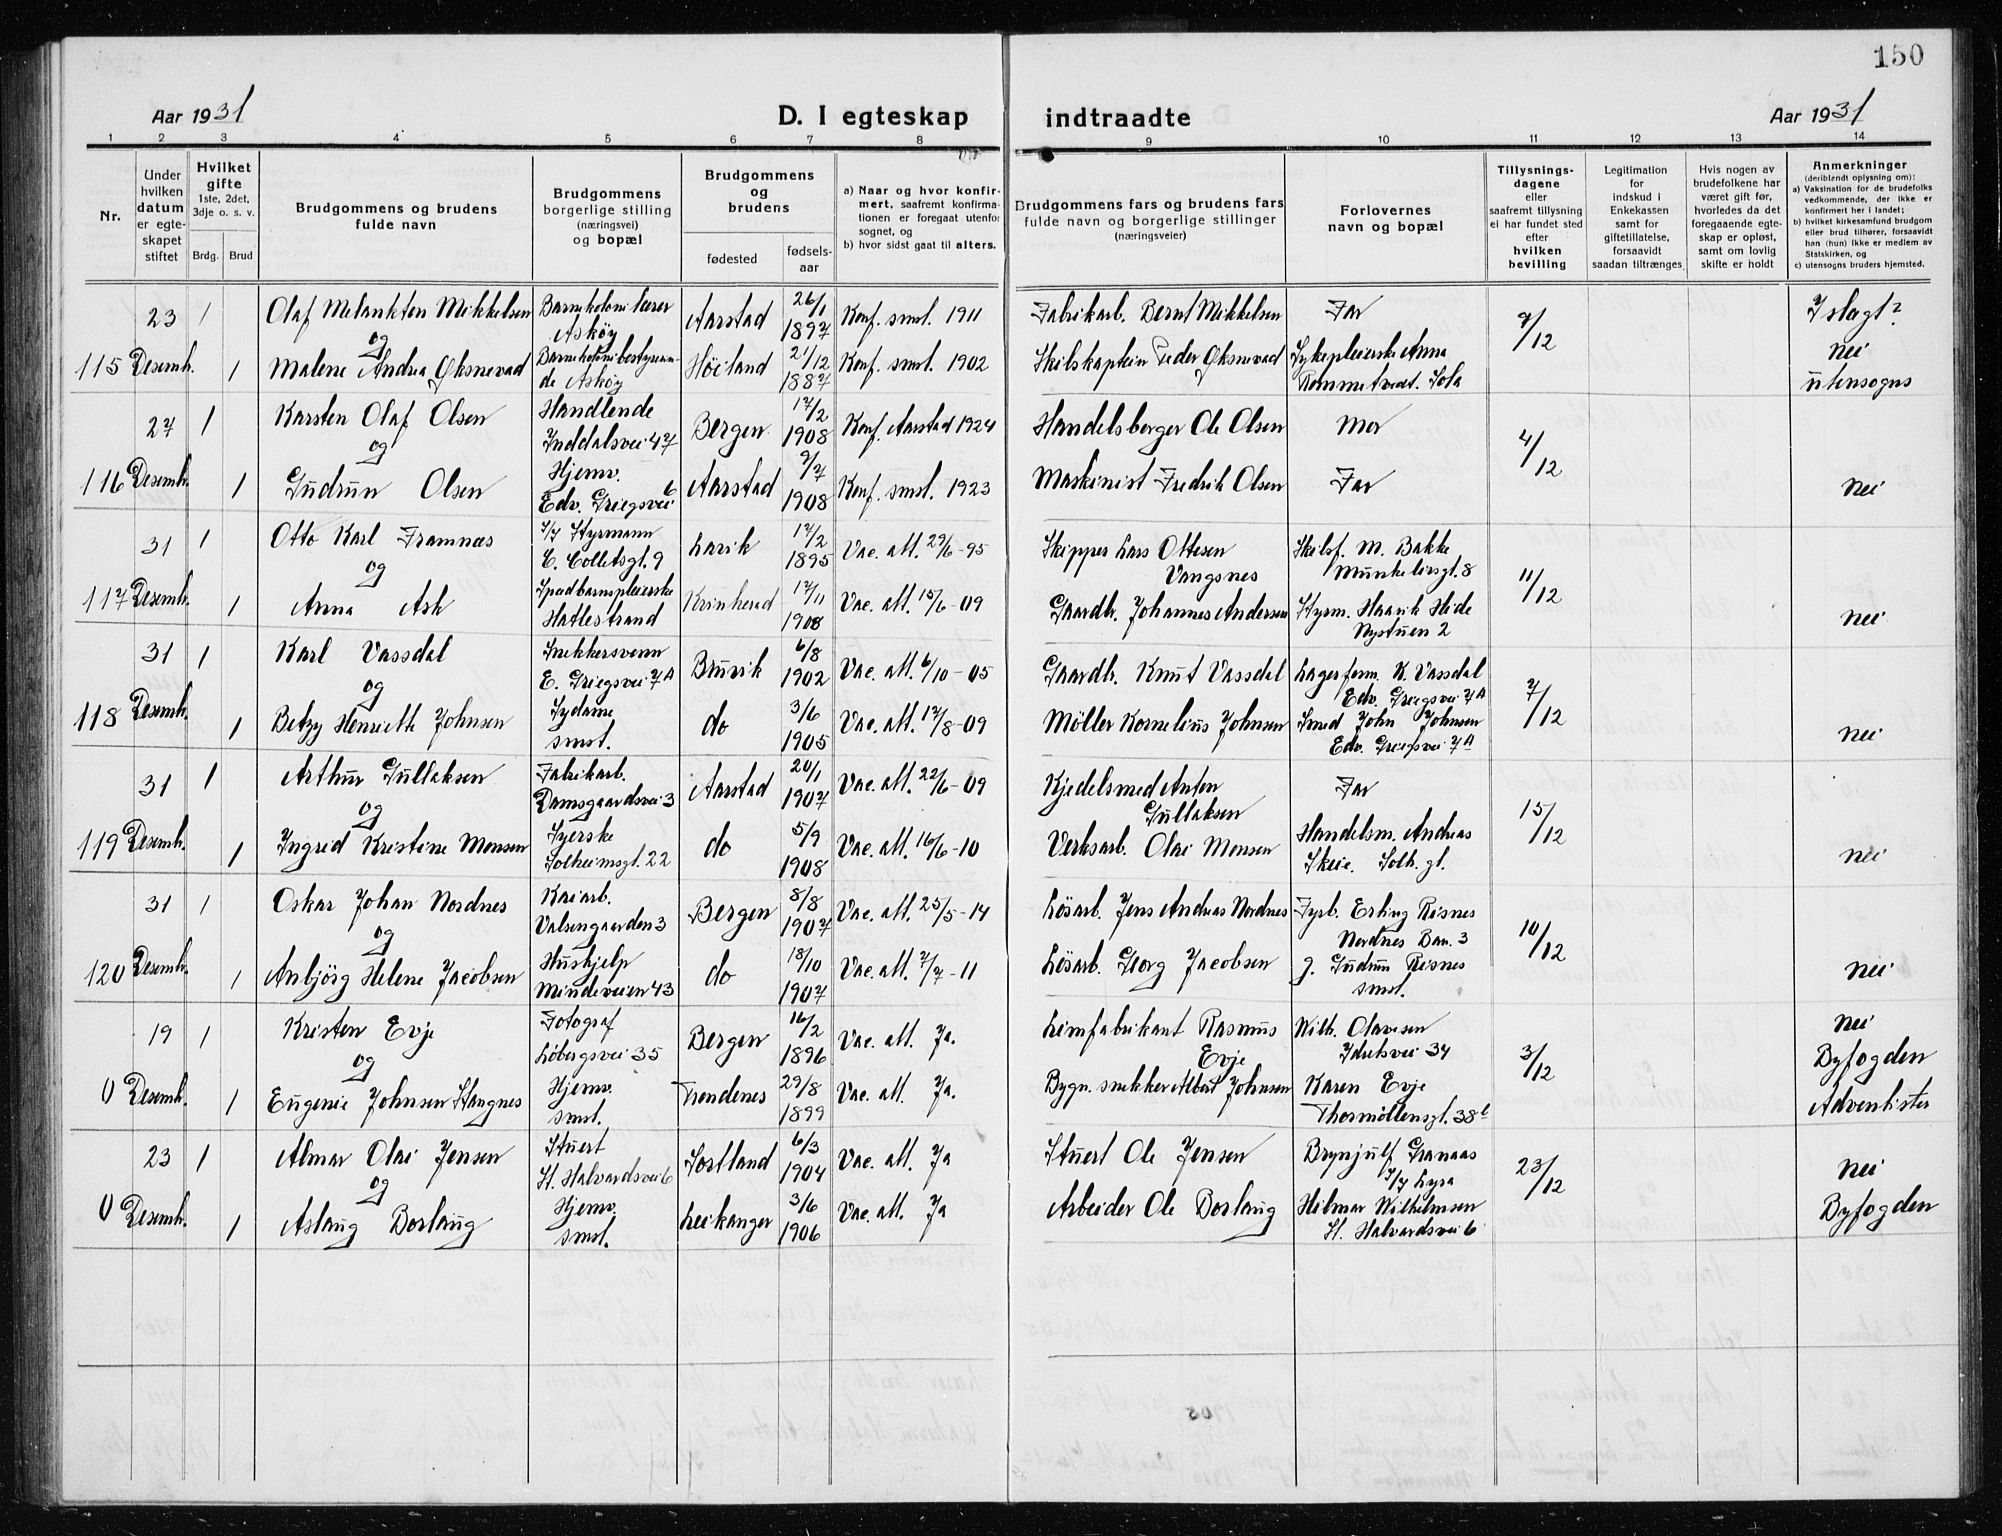 150
Aar 1931 D. I egteskap indtraadte Aar 1931
1 2 3 4 5 6 7 8 9 10 11 12 13 14
Nr.
Under hvilken datum er egteskapet stiftet
Hvilket gifte 1ste, 2det, 3dje o. s. v.
Brdg. Brud
Brudgommens og brudens fulde navn
Brudgommens borgerlige stilling (næringsvei) og bopæl
Brudgommens og brudens
fødested fødselsaar
a) Naar og hvor konfirmert, saafremt konfirmationen er foregaat utenfor sognet, og
b) hvor sidst gaat til alters.
Brudgommens fars og brudens fars fulde navn og borgerlige stillinger (næringsveier)
Forlovernes navn og bopæl
Tillysningsdagene eller saafremt tillysning ei har fundet sted efter hvilken bevilling
Legitimation for indskud i Enkekassen samt for giftetillatelse, forsaavidt saadan tiltrænges
Hvis nogen av brudefolkene har været gift før, hvorledes da det foregaaende egteskap er opløst, samt om lovlig skifte er holdt
Anmerkninger (deriblandt oplysning om):
a) Vaksination for de brudefolks vedkommende, der ikke er konfirmert her i landet;
b) hvilket kirkesamfund brudgom eller brud tilhører, forsaavidt han (hun) ikke er medlem av Statskirken, og
c) utensogns bruders hjemsted.
23 1 Olaf Melankton Mikkelsen Barnekolonilærer Askøy Aarstad 26/1 1897 Konf. smst. 1911 Fabrikarb. Bernt Mikkelsen Far 9/12 I slagt?
og
115 Desemb. 1 Malene Andrea Øksnevad Barnekolonibestyrende Askøy Høiland 21/12 1887 Konf. smst. 1902 Skibskaptein Peder Øksnevad Sykepleierske Anna Rommetvedt. Sola nei utensogns
27 1 Karsten Olaf Olsen Handlende Inddalsvei 47 Bergen 17/2 1908 Konf. Aarstad 1924 Handelsborger Ole Olsen Mor 4/12
og
116 Desemb. 1 Gudrun Olsen Hjemv. Edv. Griegsvei 6 Aarstad 9/7 1908 Konf. smst. 1923 Maskinist Fredrik Olsen Far nei
31 1 Otto Karl Framnæs Styrmann C. Colletsgt. 9 Larvik 17/2 1895 Vac. att. 29/6-95 Skipper Lars Ottesen Vangsnes Skibsf. M. Bakke Munkebergt. 8 11/12
og
117 Desemb. 1 Anna Ask Spædbarnspleierske Hatlestrand Kvinherad 17/11 1908 Vac. att. 15/6-09 Gaardbr. Johannes Andersen Styrm. Haavik Hide Nystuen 2 nei
31 1 Karl Vassdal Snekkersvenn E. Griegsvei 7A Bruvik 6/8 1902 Vac. att. 6/10-05 Gaardbr. Knut Vassdal Lagerform. K. Vassdal Edv. Griegsvei 7A 7/12
og
118 Desemb. 1 Betzy Henriette Johnsen Sydame smst. do 3/6 1905 Vac. att. 17/8-09 Møller Kornelius Johnsen Smed John Johnsen Edv. Griegsvei 7A nei
31 1 Arthur Gullaksen Fabrikarb. Damsgaardsvei 3 Aarstad 20/1 1907 Vac. att. 22/6-09 Kjedelsmed Anton Gullaksen Far 15/12
og
119 Desemb. 1 Ingrid Kristine Monsen Syerske Solheimsgt. 22 do 5/9 1908 Vac. att. 16/6-10 Verksarb. Olai Monsen Handelsm. Andreas Skeie. Solh. gt. nei
31 1 Oskar Johan Nordnes Kaiarb. Valsengaarden 3 Bergen 8/8 1907 Vac. att. 25/5-14 Løsarb. Jens Andreas Nordnes Fyrb. Erling Risnes Nordnes Bak. 3 10/12
og
120 Desemb. 1 Anbjørg Helene Jacobsen Hushjelp Mindeveien 43 do 18/10 1907 Vac. att. 7/7-11 Løsarb. Georg Jacobsen g. Gudrun Risnes smst. nei
19 1 Kristen Evje Fotograf Løbergsvei 35 Bergen 16/2 1896 Vac. att. Ja. Limfabrikant Rasmus Evje Wilh. Olavesen Idrætsvei 34 3/12 nei
og
0 Desemb. 1 Eugenie Johnsen Stangnes Hjemv. smst. Trondenes 29/8 1899 Vac. att. Ja. Bygn. snekker Albert Johnsen Karen Evje Thormøllensgt. 38 Byfogden Adventister
23 1 Almar Olai Jensen Stuert St. Halvardsvei 6 Sortland 6/3 1904 Vac. att. Ja Stuert Ole Jensen Brynjulf Granaas S/S Lyra 23/12 nei
og
0 Desemb. 1 Aslaug Borlaug Hjemv. smst. Leikanger 3/6 1906 Vac. att. Ja Arbeider Ole Borlaug Hilmar Wilhelmsen St. Halvardsvei 6 Byfogden